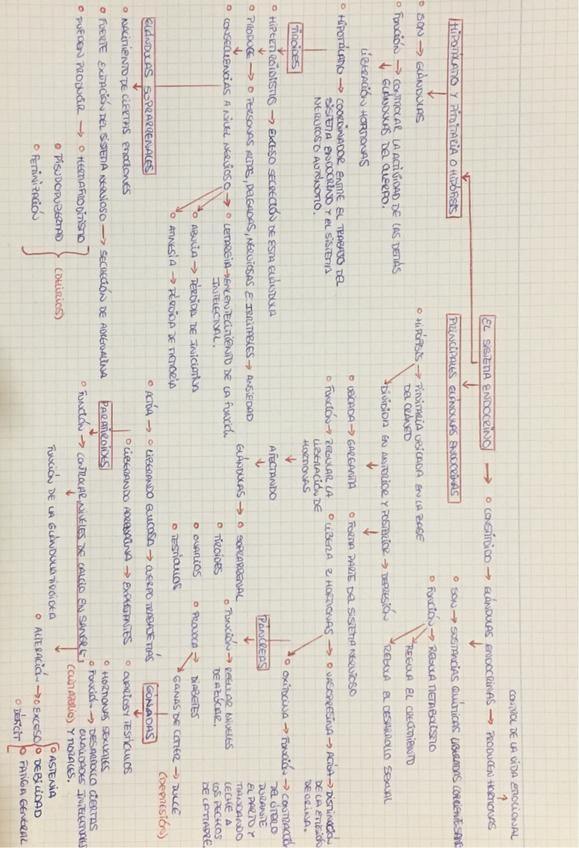 CONTROL DE LA VIDA EMOCIONAL
EL SISTEMA ENDOCRINO → CONSTITUIDO → GLÁNDULAS ENDOCRINAS → PRODUCEN HORMONAS
SON → SUSTANCIAS QUÍMICAS LIBERADAS
FUNCIÓN → REGULA METABOLISMO
REGULA EL CRECIMIENTO
REGULA EL DESARROLLO SEXUAL
PRINCIPALES GLÁNDULAS ENDOCRINAS
HIPÓFISIS → PITUITARIA UBICADA EN LA BASE
DEL CRÁNEO
DIVIDIDA EN ANTERIOR Y POSTERIOR → DEPRESIÓN
HIPOTÁLAMO Y PITUITARIA O HIPÓFISIS
SON → GLÁNDULAS
FUNCIÓN → CONTROLAR LA ACTIVIDAD DE LAS DEMÁS
GLÁNDULAS DEL CUERPO.
LIBERACIÓN HORMONAS
HIPOTÁLAMO → COORDINADOR ENTRE EL TRABAJO DEL
SISTEMA ENDOCRINO Y EL SISTEMA
NERVIOSO AUTÓNOMO.
FORMA PARTE DEL SISTEMA NERVIOSO
LIBERA 2 HORMONAS → VASOPRESINA → ACTÚA → DISMINUCIÓN
DE LA EMISIÓN
DE ORINA.
OXITOCINA → FUNCIÓN → CONTRACCIÓN
DEL ÚTERO
DURANTE
EL PARTO Y
LECHE A
LOS PECHOS
TIROIDES
UBICADA → GARGANTA
FUNCIÓN → REGULAR LA
LIBERACIÓN DE
HORMONAS
AFECTANDO
HIPERTIROIDISMO → EXCESO SECRECIÓN DE ESTA GLÁNDULA
PRODUCE → PERSONAS ALTAS, DELGADAS, NERVIOSAS E IRRITABLES → ANSIEDAD
CONSECUENCIAS A NIVEL NERVIOSO → LETARGIA → ENLENTECIMIENTO DE LA FUNCIÓN
INTELECTUAL.
ABULIA → PÉRDIDA DE INICIATIVA
AMNESIA → PÉRDIDA DE MEMORIA
GLÁNDULAS → SUPRARRENAL
TIROIDES
OVARIOS
TESTÍCULOS
PÁNCREAS
FUNCIÓN → REGULAR NIVELES
DE AZÚCAR.
PROVOCA → DIABETES
GANAS DE COMER → DULCE
(DEPRESIÓN)
GLÁNDULAS SUPRARRENALES
NACIMIENTO DE CIERTAS EMOCIONES
FUERTE EXCITACIÓN DEL SISTEMA NERVIOSO → SECRECIÓN DE ADRENALINA
PUEDEN PRODUCIR → HERMAFRODITISMO
PSEUDOPUBERTAD
FEMINIZACIÓN
(DELIRIOS)
ACTÚA → LIBERANDO GLUCOSA → CUERPO TRABAJE MÁS
LIBERANDO ADRENALINA →
PARATIROIDES
FUNCIÓN → CONTROLAR NIVELES DE CALCIO EN SANGRE
FUNCIÓN DE LA GLÁNDULA TIROIDEA
ALTERACIÓN → EXCESO
DÉFICIT
ASTENIA
DEBILIDAD
FATIGA GENERAL
GÓNADAS
OVARIOS Y TESTÍCULOS
HORMONAS SEXUALES
FUNCIÓN → DESARROLLO CIERTAS
CUALIDADES INTELECTUALES
Y MORALES.